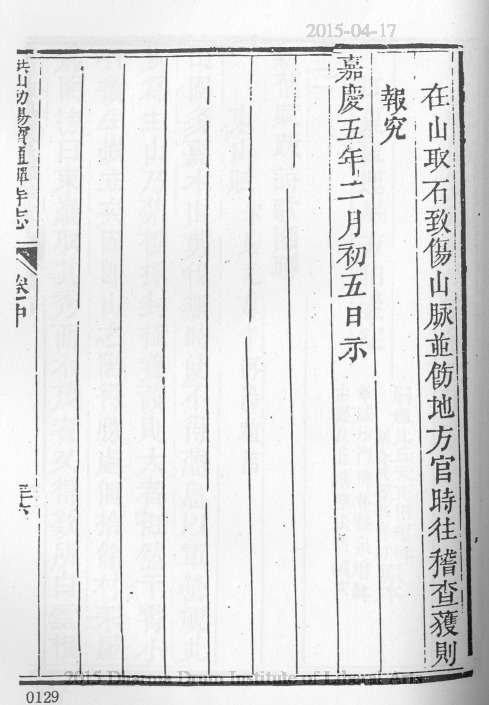 2015-04-17
在山取石致傷山脈並飭地方官時往稽查蒦則
報究
嘉慶五年二月初五日示
洪山幼暘寶通禪寺志
卷中
三六
2015 Dharma Drum Institute of Liberal Arts
0129